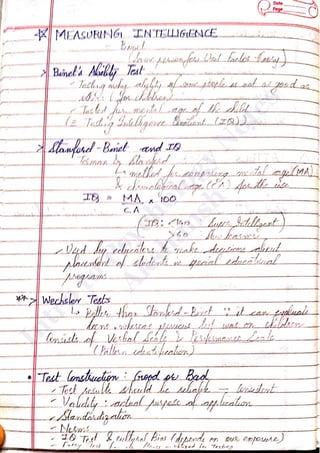 Date
Page
MEASURING INTELLIGENCE
- Binet
> Binet's Ability Test
- Testing ability of some people is not as good as
others (for children)
- Tested for mental age of the child
(= Testing Intelligence Quotient (IQ))
> Stanford - Binet and IQ
Terman by Stanford
↳ method for comparing mental age (MA)
& chronological age (CA) for the
IQ = MA x 100
CA
IQ: <140 Super Intelligent
>60 Slow learner
- Used by educators to make decisions about
placement of students in special educational
programs
** > Wechsler Tests
↳ Better than Stanford-Binet ∵ it can evaluate
whereas previous test was on children
Consists of Verbal Scale & Performance Scale
(Pattern identification)
• Test Construction : Good or Bad
- Test results should be reliable - consistent
- Validity : actual purpose of application
- Standardization
- Norms
- IQ Test & cultural Bias (depends on our exposure)